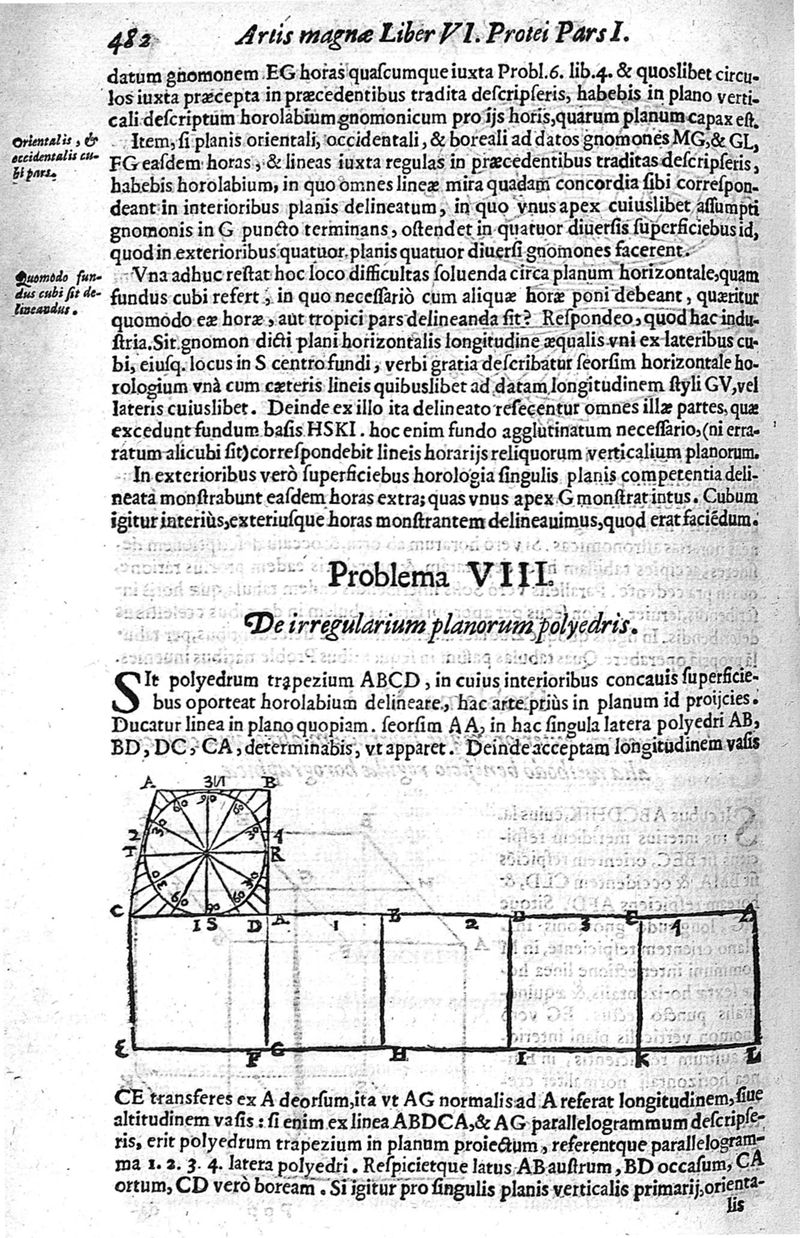 482 Artis magnæ Liber VI. Protei Pars I.
datum gnomonem EG horas quascumque iuxta Probl. 6. lib. 4. & quoslibet circu-
los iuxta præcepta in præcedentibus tradita descripseris, habebis in plano verti-
cali descriptum horolabium gnomonicum pro ijs horis, quarum planum capax est.
Orientalis, &
occidentalis cu-
bi pars.
Item, si planis orientali, occidentali, & boreali ad datos gnomones MG, & GL,
FG easdem horas, & lineas iuxta regulas in præcedentibus traditas descripseris,
habebis horolabium, in quo omnes lineæ mira quadam concordia sibi correspon-
deant in interioribus planis delineatum, in quo vnus apex cuiuslibet assumpti
gnomonis in G puncto terminans, ostendet in quatuor diuersis superficiebus id,
quod in exterioribus quatuor planis quatuor diuersi gnomones facerent.
Quomodo fun-
dus cubi sit de-
lineandus.
Vna adhuc restat hoc loco difficultas soluenda circa planum horizontale, quam
fundus cubi refert, in quo necessariò cum aliquæ horæ poni debeant, quæritur
quomodo eæ horæ, aut tropici pars delineanda sit? Respondeo, quod hac indu-
stria. Sit gnomon dicti plani horizontalis longitudine æqualis vni ex lateribus cu-
bi, eiusq. locus in S centro fundi, verbi gratia describatur seorsim horizontale ho-
rologium vnà cum cæteris lineis quibuslibet ad datam longitudinem styli GV, vel
lateris cuiuslibet. Deinde ex illo ita delineato resecentur omnes illæ partes, quæ
excedunt fundum basis HSKI. hoc enim fundo agglutinatum necessario, (ni erra-
ratum alicubi sit) correspondebit lineis horarijs reliquorum verticalium planorum.
In exterioribus verò superficiebus horologia singulis planis competentia deli-
neata monstrabunt easdem horas extra; quas vnus apex G monstrat intus. Cubum
igitur interiùs, exteriusque horas monstrantem delineauimus, quod erat faciẽdum.
Problema VIII.
De irregularium planorum polyedris.
SIt polyedrum trapezium ABCD, in cuius interioribus concauis superficie-
bus oporteat horolabium delineare, hac arte priùs in planum id proijcies.
Ducatur linea in plano quopiam seorsim AA, in hac singula latera polyedri AB,
BD, DC, CA, determinabis, vt apparet. Deinde acceptam longitudinem vasis
A B
60 60
2 30 30 4
T R
30 30
60 90 60
C 1 S D A 1 B 2 D 3 C 4 A
E F G H I K L
CE transferes ex A deorsum, ita vt AG normalis ad A referat longitudinem, siue
altitudinem vasis: si enim ex linea ABDCA, & AG parallelogrammum descripse-
ris, erit polyedrum trapezium in planum proiectum, referentque parallelogram-
ma 1. 2. 3. 4. latera polyedri. Respicietque latus AB austrum, BD occasum, CA
ortum, CD verò boream. Si igitur pro singulis planis verticalis primarij, orienta-
lis